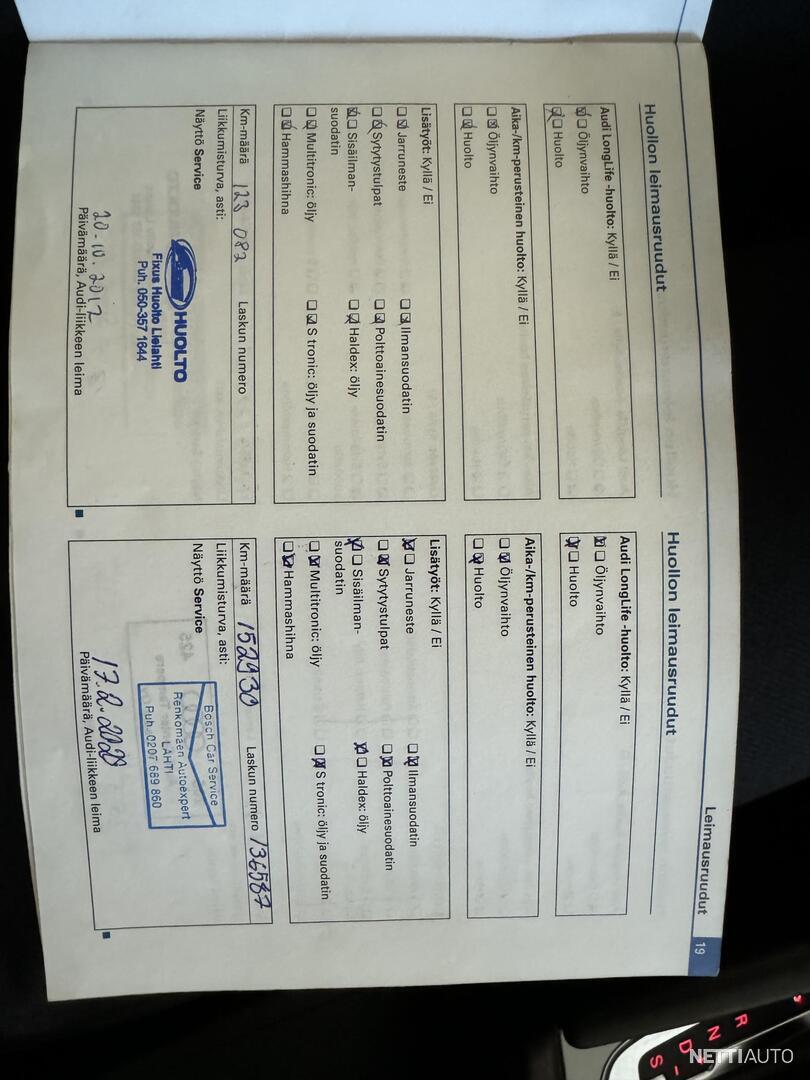 Leimausruudut
19
Huollon leimausruudut
Audi LongLife -huolto: Kyllä / Ei
Öljynvaihto
Huolto
Aika-/km-perusteinen huolto: Kyllä / Ei
Öljynvaihto
Huolto
Lisätyöt: Kyllä / Ei
Jarruneste
Ilmansuodatin
Sytytystulpat
Polttoainesuodatin
Sisäilman-
suodatin
Haldex: öljy
Multitronic: öljy
S tronic: öljy ja suodatin
Hammashihna
Km-määrä 123 082 Laskun numero
Liikkumisturva, asti:
Näyttö Service
HUOLTO
Fixus Huolto Lielahti
Puh. 050-357 1644
20-10.2017
Päivämäärä, Audi-liikkeen leima
Huollon leimausruudut
Audi LongLife -huolto: Kyllä / Ei
Öljynvaihto
Huolto
Aika-/km-perusteinen huolto: Kyllä / Ei
Öljynvaihto
Huolto
Lisätyöt: Kyllä / Ei
Jarruneste
Ilmansuodatin
Sytytystulpat
Polttoainesuodatin
Sisäilman-
suodatin
Haldex: öljy
Multitronic: öljy
S tronic: öljy ja suodatin
Hammashihna
Km-määrä 152930 Laskun numero 136587
Liikkumisturva, asti:
Näyttö Service
Bosch Car Service
Renkomäen Autoexpert
LAHTI
Puh. 0207 689 860
17.2.2020
Päivämäärä, Audi-liikkeen leima
R
N
D
S
NETTIAUTO